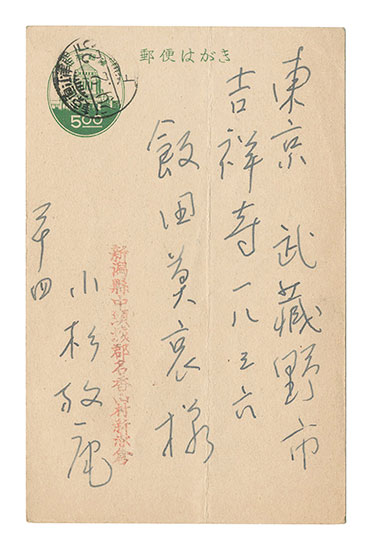 郵便はがき
5.00
東京 武蔵野市
吉祥寺一八三六
飯田莫哀様
新潟縣中頸城郡名香山村新赤倉
小杉放庵